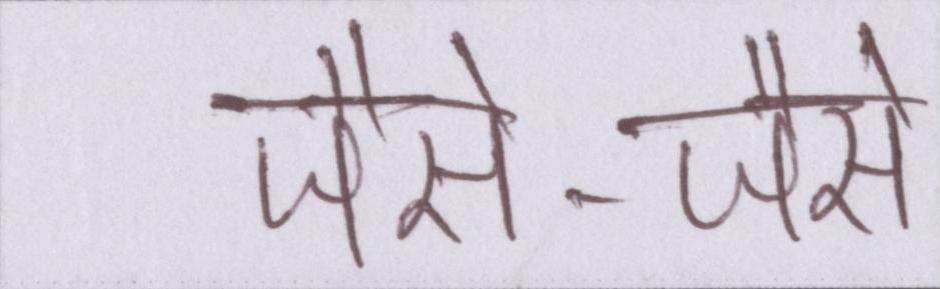 जैसे-जैसे